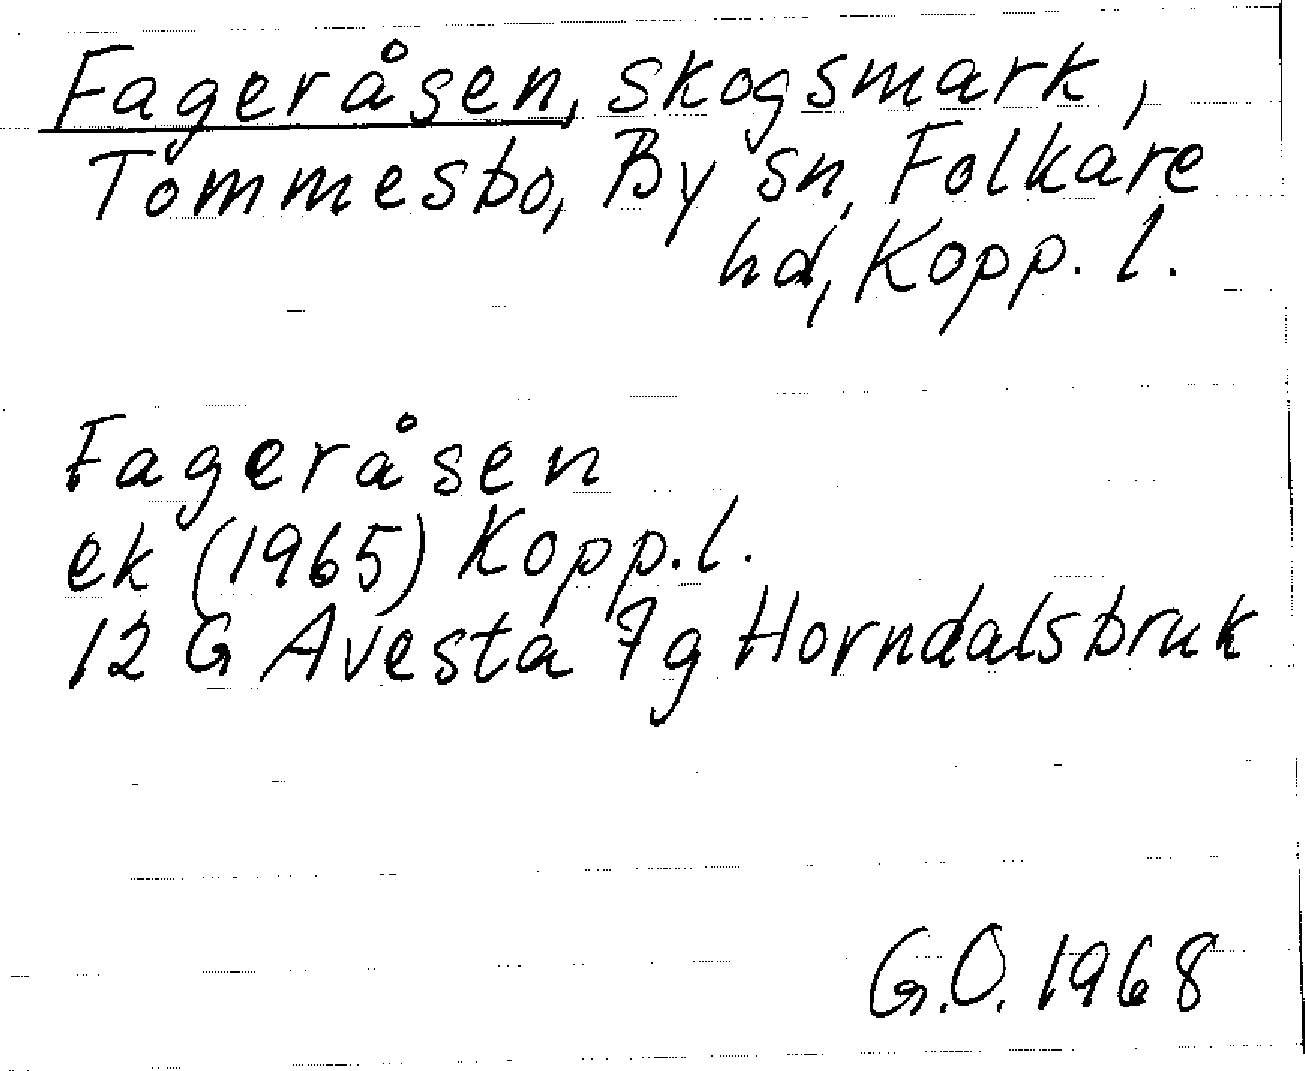 Fageråsen, skogsmark,
Tommesbo, By sn, Folkare
hd, Kopp. l.
Fageråsen
ek (1965) Kopp. l.
12 G Avesta 7g Horndalsbruk
G.O. 1968